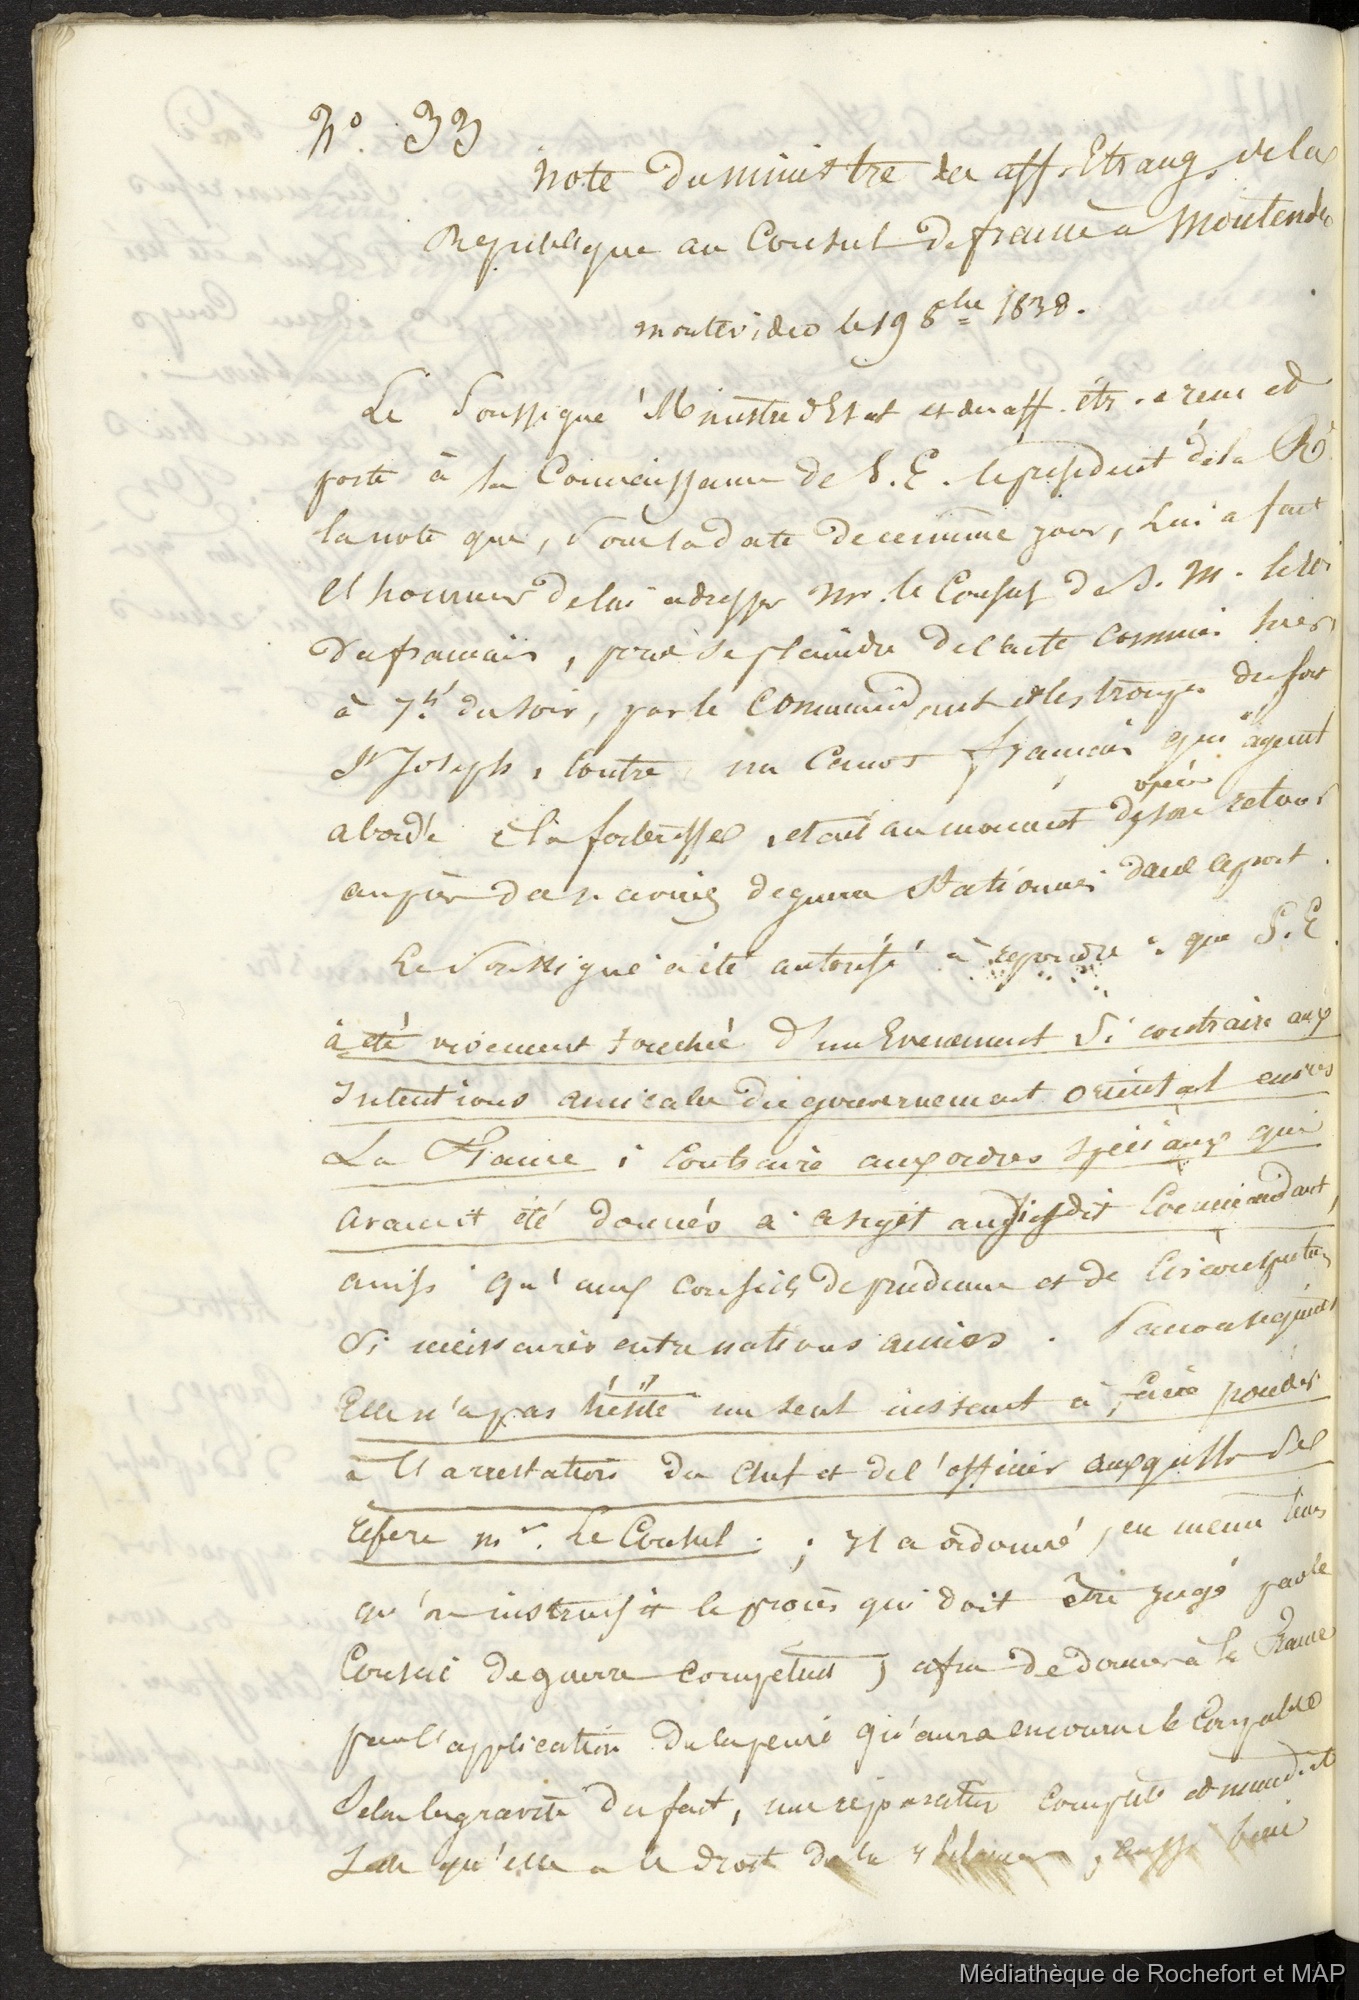 N° 33
Note du ministre des aff. Etrang. de la
Republique au Consul de france à Montevideo
Montevideo le 19 8bre 1838.
Le Soussigné Ministre d'Etat et des aff. étr. a reçu et
porté à la Connaissance de S. E. le président de la R.
la note que, sous la date de ce même jour, lui a fait
l'honneur de lui adresser Mr. le Consul de S. M. le roi
des français, pour se plaindre de l'acte commis hier
à 7h. du soir, par le Commandant et les troupes du fort
St Joseph, contre un Canot français qui ayant
abordé à la forteresse, etait au moment d'opérer son retour
auprès des navires de guerre stationnés dans le port.
Le Soussigné a été autorisé à repondre : que S. E.
a été vivement touchée d'un Evenement si contraire aux
Intentions amicales du gouvernement oriental envers
La France ; contraire aux ordres spéciaux qui
avaient été donnés à ce sujet au susdit Commandant,
ainsi qu'aux conseils de prudence et de circonspection
si nécessaires entre nations amies. Par conséquent
Elle n'a pas hésité un seul instant à faire procéder
à l'arrestation du chef et de l'officier auxquels se
réfère Mr. Le Consul ; il a ordonné, en même tems
qu'on instruisit le procès qui doit être jugé par le
Conseil de guerre compétent, afin de donner à la France
par l'application de la peine qu'aura encourue le coupable
Selon la gravité du fait, une réparation complète et immédiate
Telle qu'elle a le droit de la réclamer, aussi bien
Médiathèque de Rochefort et MAP